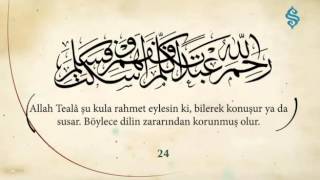 رحم الله عبدا تكلم فغنم أو سكت فسلم
Allah Teala şu kula rahmet eylesin ki, bilerek konuşur ya da
susar. Böylece dilin zararından korunmuş olur.
24